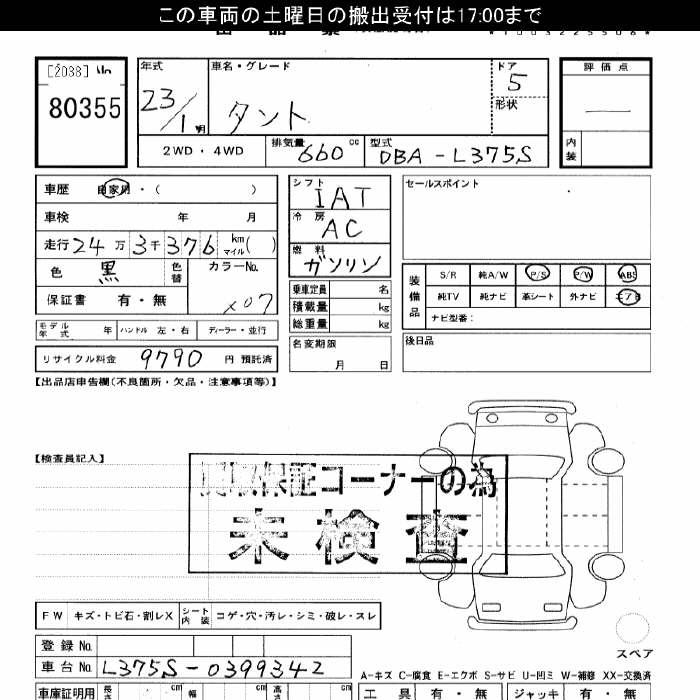 この車両の土曜日の搬出受付は17:00まで
[2033] No
80355
年式
23/1
車名・グレード
タント
ドア
5
形状
評価点
内装
2WD・4WD
排気量
660 cc
型式
DBA-L375S
車歴 自家用・( )
車検 年 月
走行 24万 3千 376 km マイル( )
色 黒 色替
カラーNo.
X07
保証書 有・無
モデル年式 年 ハンドル 左・右 ディーラー・並行
リサイクル料金 9790 円 預託済
シフト
IAT
冷房
AC
燃料
ガソリン
乗車定員 名
積載量 kg
総重量 kg
名変期限
月 日
セールスポイント
装備品
S/R 純A/W P/S P/W ABS
純TV 純ナビ 革シート 外ナビ エアB
ナビ型番:
後日品
【出品店申告欄(不良箇所・欠品・注意事項等)】
【検査員記入】
保証コーナーの為
未検査
FW キズ・トビ石・割レX シート内装 コゲ・穴・汚レ・シミ・破レ・スレ
スペア
登録No.
車台No. L375S-0399342
A-キズ C-腐食 E-エクボ S-サビ U-凹ミ W-補修 XX-交換済
車庫証明用 長さ cm 幅 cm 高さ cm
工具 有・無 ジャッキ 有・無